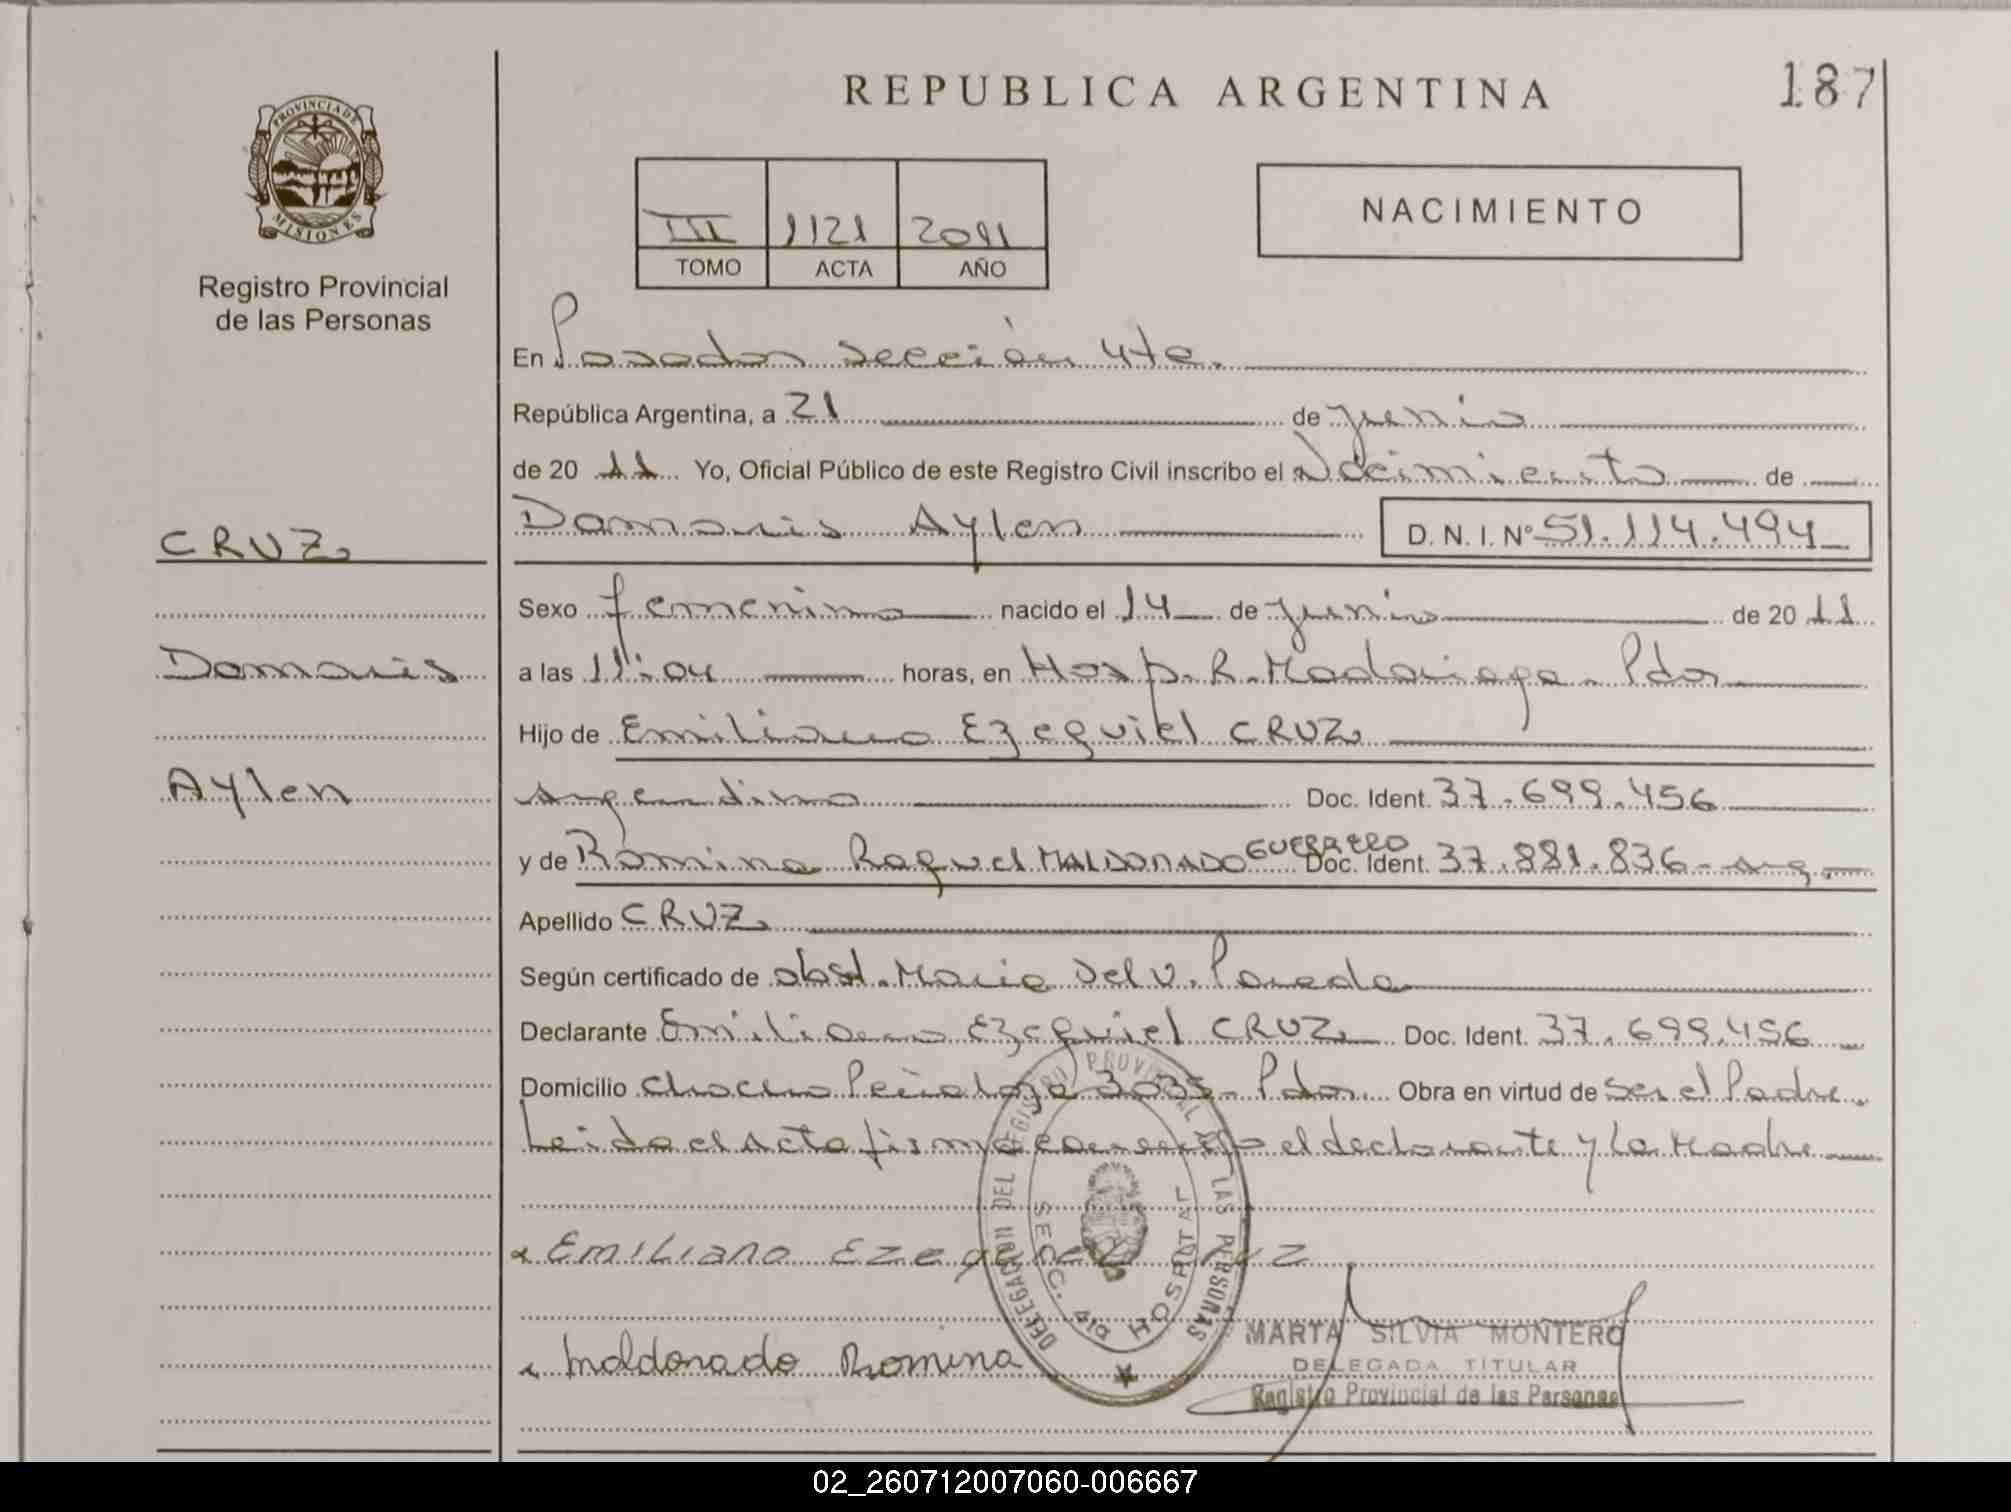 REPUBLICA ARGENTINA
187
PROVINCIA DE
MISIONES
Registro Provincial
de las Personas
III 1121 2011
TOMO ACTA AÑO
NACIMIENTO
En Posadas sección 4ta.
República Argentina, a 21 de junio
de 20 11 Yo, Oficial Público de este Registro Civil inscribo el Nacimiento de
CRUZ
Damaris Aylen D.N.I.Nº 51.114.494
Sexo femenino nacido el 14 de junio de 20 11
Damaris
a las 11:04 horas, en Hosp. R. Madariaga - Pdas
Hijo de Emiliano Ezequiel CRUZ
Aylen
argentino Doc. Ident. 37.699.456
y de Romina Raquel MALDONADO GUERRERO Doc. Ident. 37.881.836 - arg.
Apellido CRUZ
Según certificado de obst. Maria del V. Pareda
Declarante Emiliano Ezequiel CRUZ Doc. Ident. 37.699.456
Domicilio Chacho Peñaloza 3035 - Pdas. Obra en virtud de ser el Padre.
Leida el Acta firma conmigo el declarante y la Madre
Emiliano Ezequiel Cruz
Maldonado Romina
DELEGACION DEL REGISTRO PROVINCIAL DE LAS PERSONAS
SECC. 4ta HOSPITAL
MARTA SILVIA MONTERO
DELEGADA TITULAR
Registro Provincial de las Personas
02_260712007060-006667